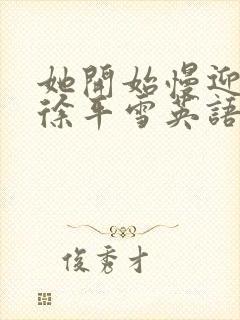 她開始慢迎
徐平雪英語
俊秀才